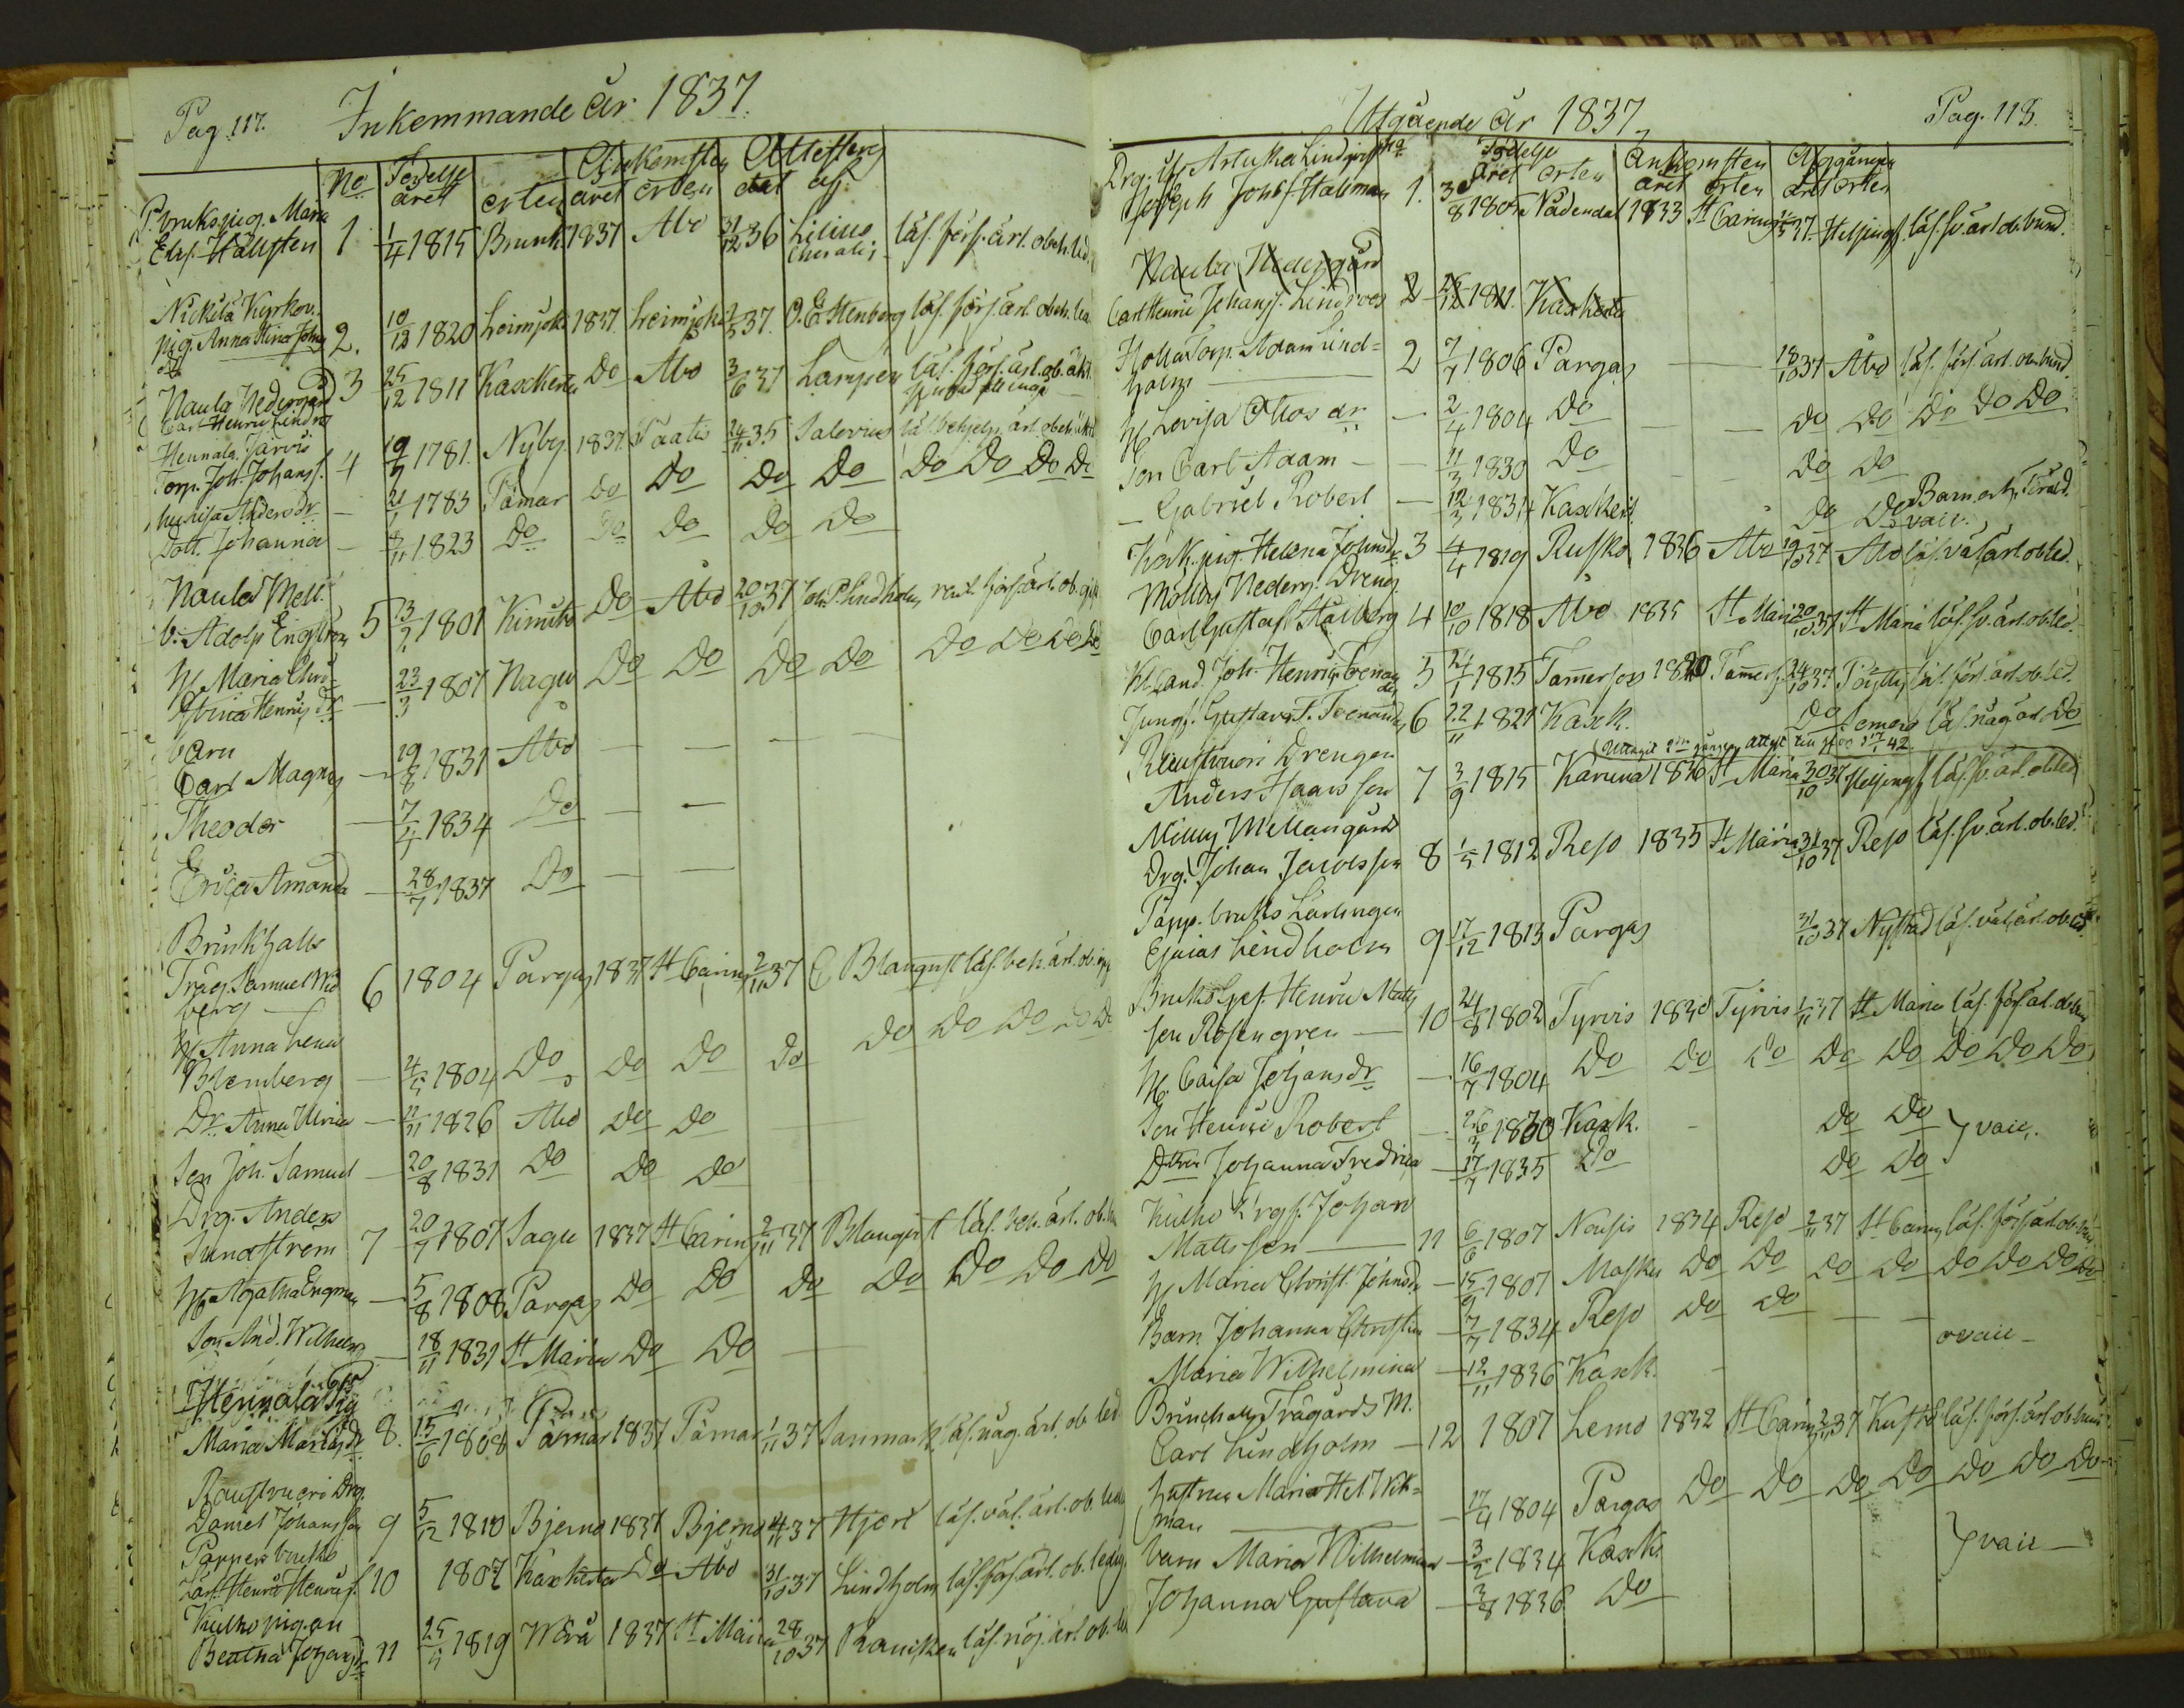 Pag. 117.
Inkommande år 1837.
No Födelse Ankomsten Attesten
året orten året orten dat af
P. bruks pig. Maria
Hällsten 1 1/4 1815 Brunk 1837 Åbo 31/12 36 Lilius läs. förs. ärl. obeh. led.
Nickilä Kyrkov.
pig. Anna Stina Johns
dr 2. 10/12 1820 Loimjoki 1837 Loimjoki 37. O. E. Stenberg läs. förs. ärl. obeh. led
Naula Nedergård 3 25/12 1811 Kaxkerta Do Åbo 3/6 37 Lampen läs. förs. ärl. ob. äkt.
Carl Henric Lindros
Hennala Järvis
Torp. Joh. Johanss. 4 19/9 1781. Nyby 1837. Paatis 24/11 35 Salovius läs behjelp. ärl. obeh. äkt
hu Lisa Anders dr — 21/1 1783 Pämar Do Do Do Do Do Do Do Do
Dott. Johanna — 8/11 1823 Do Do Do Do Do
Naula Mell.
b. Adolf Engström 5 13/2 1801 Kimito Do Åbo 20/10 37 Joh. P. Lindholm förs. ärl. ob. gift
H. Maria Chri-
stina Henrics dr — 23/3 1807 Nagu Do Do Do Do Do Do Do Do
Barn
Carl Magnus — 19/8 1831 Åbo — — — —
Theodor — 7/4 1834 Do — —
Erica Amanda — 28/7 1837 Do — —
Brinkhalls
Träg. Samuel Wid
berg — 6 1804 Pargas 1837 St Carins 2/11 37 E Blanqust läs. beh. ärl. ob. gift
H. Anna Lena
Blomberg — 4/5 1804 Do Do Do Do Do Do Do Do Do
Dr. Anna Ulrica — 11/11 1826 Åbo Do Do
Son Joh. Samuel — 20/8 1831 Do Do Do
Drg. Anders
Sundström 7 20/7 1807 Sagu 1837 St Carins 2/11 37 Blanqvist läs. beh. ärl. ob.
H. Agatha Engman — 5/8 1808 Pargas Do Do Do Do Do Do Do
Son And. Wilhelm — 18/11 1831 St Maria Do Do —
Hennala Pig
Maria Matts dr 8. 15/6 1808 Pämar 1837 Pämar 1/11 37 Sanmark. läs. någ. ärl. ob. led
Raustvuori Drg.
Daniel Johansson 9 5/12 1810 Bjerno 1837 Bjerno 4/11 37 Hjert läs. väl. ärl. ob. ledig
Pappers bruks
Lärl. Henric Henrics. 10 1807 Kaxkerta Do Åbo 31/10 37 Lindholm läs. förs. ärl. ob. ledig
Kulho pigan
Beatha Johans dr 11 25/5 1819 Wörå 1837 St Maria 28/10 37 Rancken läs. nöj. ärl. ob. led
Utgående år 1837.
Pag. 118.
Födelse Ankomsten Afgången
året orten året orten dat orten
Joseph Johs s. Hallman 1. 3/8 1805 Nådendal 1833 St Carins 1/5 37. Helsingf. läs. sv. ärl. ob. bund.
Naula Nedergård
Carl Henric Johanss. Lindroos 2 25/12 1811 Kaxkerta
Torp. Adam Lind-
holm — 2 7/7 1806 Pargas — — 18/10 37 Åbo läs. förs. ärl. ob. bund
H. Lovisa Otto's dr. — 2/4 1804 Do — — Do Do Do Do Do
Son Carl Adam — — 11/3 1830 Do — Do Do
— Gabriel Robert — 12/3 1834 Kaxkert. Do Do
vacc.
Kork. pig. Helena Johnsdr 3 4/4 1819 Rusko 1836 Åbo 19/10 37 Åbo läs. väl ärl. ob led.
Mölby Nederg. Dreng.
Carl Gustaf Stålberg 4 10/10 1818 Åbo 1835 St Maria 20/10 37 St Maria läs. sv. ärl. ob led.
Kl. Land. Joh. Henric Forsman 5 24/1 1815 Tamerfors 1820 Tamerf. 24/10 37 Pöytty läs. förs. ärl. ob. led.
Jungf. Gustava F. 6 22/11 1821 Kaxk. Do Somero läs. någ. ärl. Do
Raustvuori Drengen
Anders Haansson 7 3/9 1815 Karuna 1836 St Maria 30/10 37 Helsingf. läs. sv. ärl. ob led
Mellangård
Drg. Johan Jacobsson 8 1/5 1812 Reso 1835 St Maria 31/10 37 Reso läs. sv. ärl. ob. led.
Papp. bruks Lärlingen
Esaias Lindholm 9 17/12 1813 Pargas 31/10 37 Nystad läs. väl ärl. ob. led.
Bruks Ges. Henric Matts
son Rosengren — 10 24/8 1802 Tyrvis 1830 Tyrvis 1/11 37 St Maria läs. förs. ärl. ob bun
H. Caisa Johansdr — 16/7 1804 Do Do Do Do Do Do Do Do
Son Henric Robert — 26/3 1830 Kaxk. — Do Do } vacc.
Dottren Johanna Fredrica — 17/7 1835 Do Do Do
Kulho Krgf. Johan
Mattsson — 11 6/6 1807 Nousis 1834 Reso 2/11 37 St Carins läs. förs. ärl. ob. bun
H. Maria Christ. Johnsdr. — 15/9 1807 Masku Do Do Do Do Do Do Do Do
Barn. Johanna Christin — 7/7 1834 Reso Do Do — —
Maria Wilhelmina — 12/11 1836 Kaxk. — ovacc —
Brinkhalls Trägårds M.
Carl Lindholm — 12 1807 Lemo 1832 St Carins 2/11 37 läs. förs. ärl. ob. bund
Hustrun Maria Hel. Wik-
man — 17/4 1804 Pargas Do Do Do Do Do Do Do
barn Maria Wilhelmina — 3/2 1834 Kaxk. } vacc —
Johanna Gustava — 3/8 1836 Do